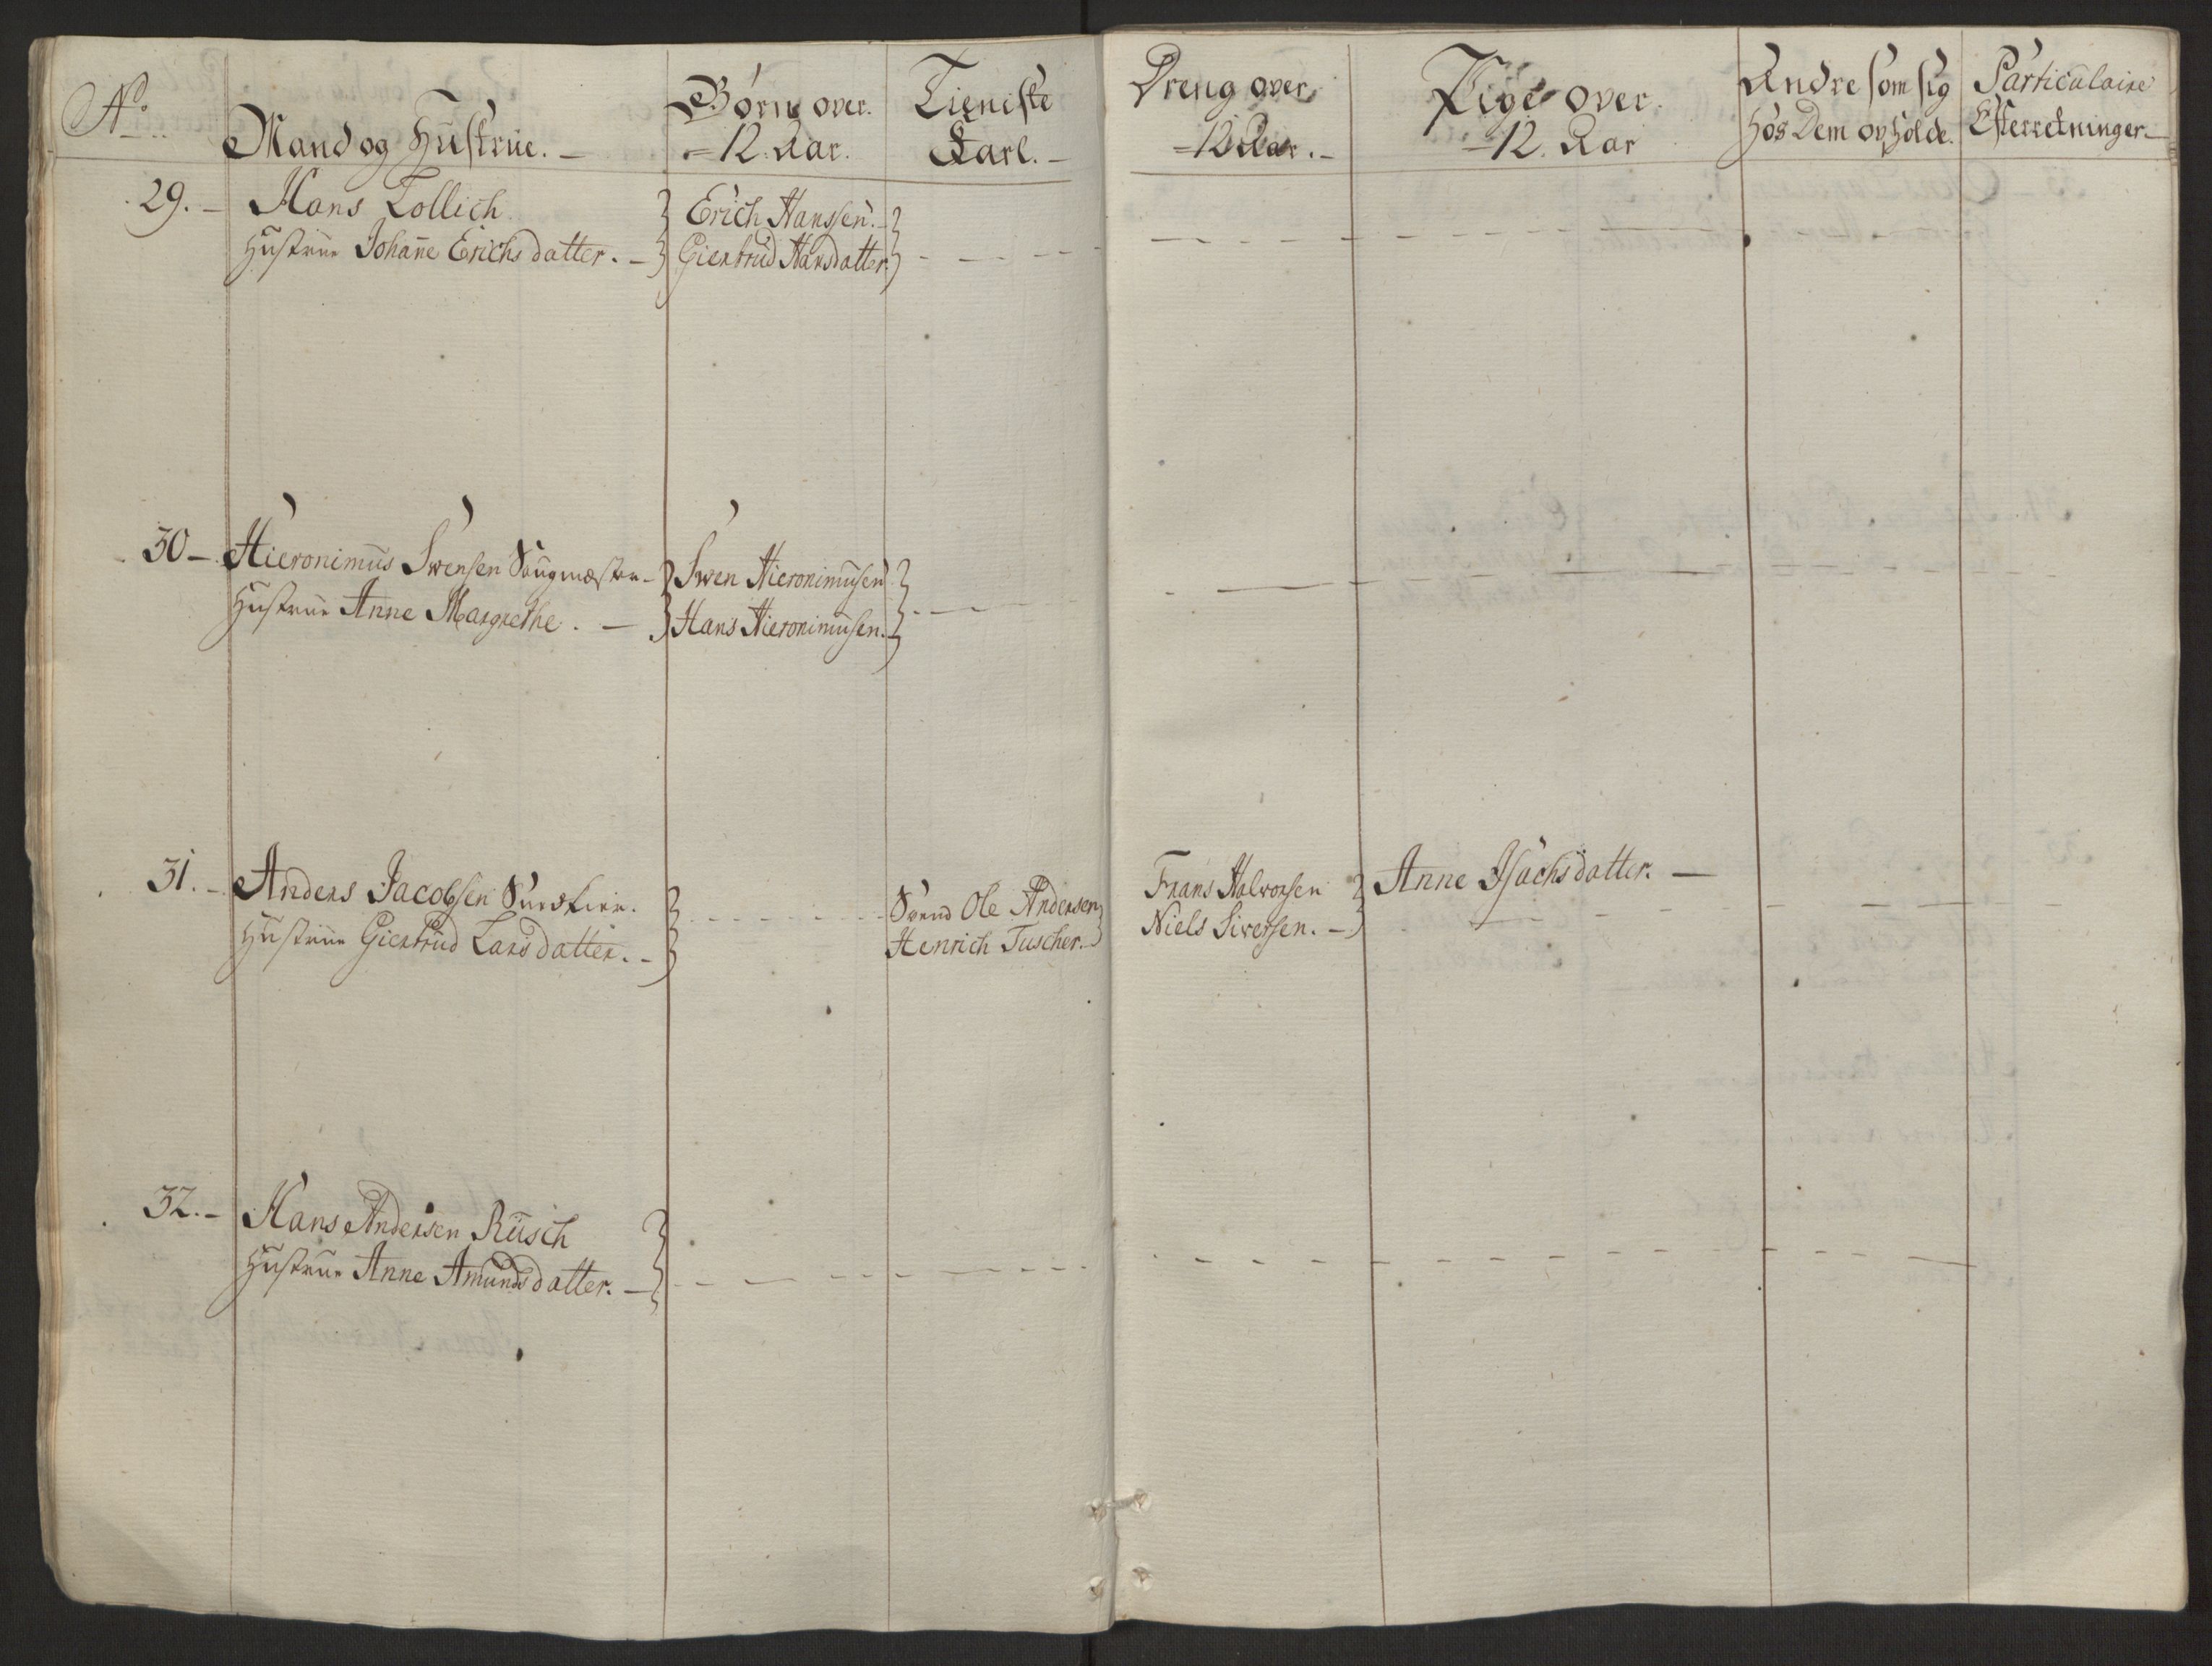 No.
Mand og Hustrue.
Børn over
12. Aar.
Tieniste
Karl.
Dreng over
12 Aar.
Pige over
12. Aar
Andre som sig
hos Dem opholde.
Particulaire
Efterretninger
29. Hans Lollich
Hustrue Johanne Erichsdatter.
Erich Hanssen.
Giertrud Hansdatter
30 Hieronimus Svensen
Hustrue Anne Margrethe.
Swen Hieronimusen
Hans Hieronimusen.
31. Anders Jacobsen
Hustrue Giertrud Larsdatter.
Svend Ole Andersen
Henrich Tuscher.
Frans Halvorsen
Niels Siversen.
Anne Isachsdatter.
32. Hans Andersen Rüsch
Hustrue Anne Amundsdatter.